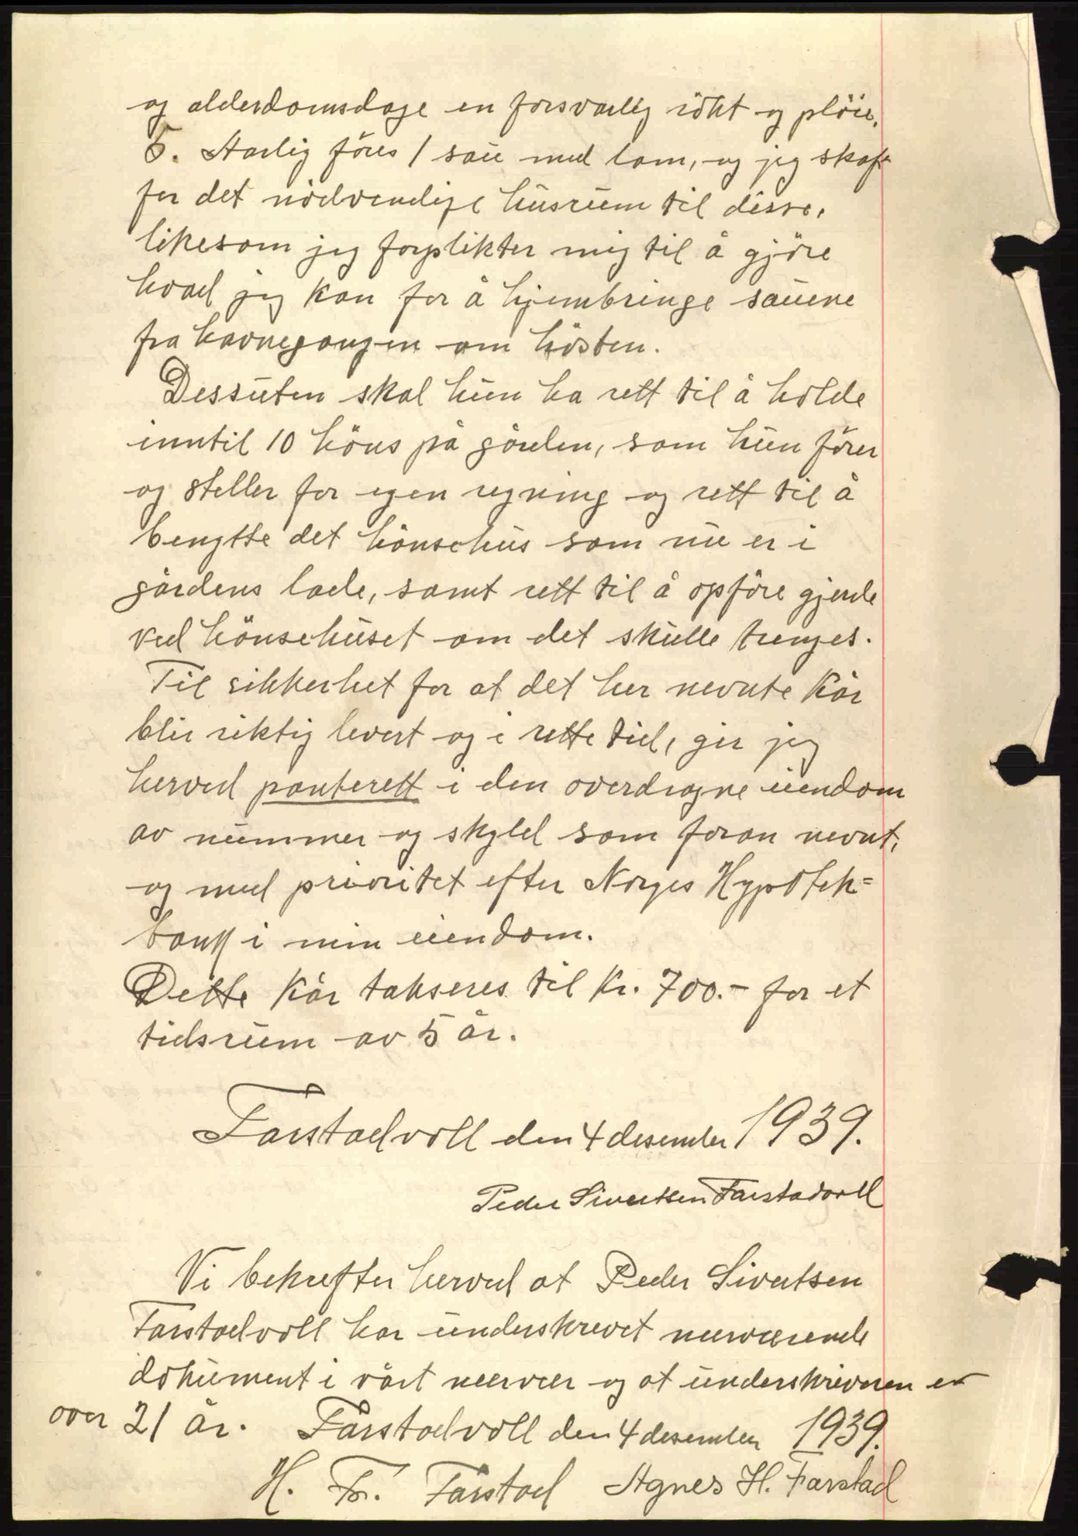 og alderdomsdage en forsvarlig rökt og pleie.
5. Aarlig föres 1 sau med lam, og jeg skaf-
fer det nödvendige husrum til disse,
likesom jeg forplikter mig til å gjöre
hvad jeg kan for å hjembringe sauene
fra havnegangen om hösten.
Dessuten skal hun ha rett til å holde
inntil 10 höns på gården, som hun förer
og steller for egen regning og rett til å
benytte det hönsehus som nu er i
gårdens lade, samt rett til å opföre gjerde
ved hönsehuset om det skulle trenges.
Til sikkerhet for at det her nevnte kår
blir riktig levert og i rette tid, gir jeg
herved panterett i den overdragne eiendom
av nummer og skyld som foran nevnt,
og med prioritet efter Norges Hypotek=
bank i min eiendom.
Dette kår takseres til kr. 700.- for et
tidsrum av 5 år.
Farstadvoll den 4 desember 1939.
Peder Sivertsen Farstadvoll
Vi bekrefter herved at Peder Sivertsen
Farstadvoll har underskrevet nærværende
dokument i vårt nærvær og at underskriveren er
over 21 år. Farstadvoll den 4 desember 1939.
H. Fr. Farstad Agnes H. Farstad